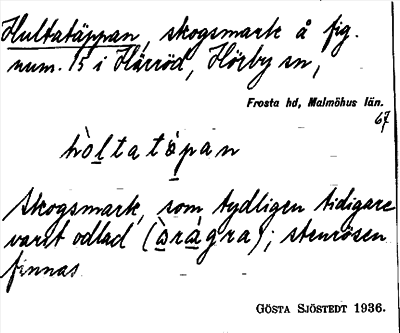 Hultatäppan, skogsmark å fig.
num. 15 i Härröd, Hörby sn,
Frosta hd, Malmöhus län.
67
hòltatäpan
Skogsmark, som tydligen tidigare
varit odlad (àrágra); stenrösen
finnas
GÖSTA SJÖSTEDT 1936.